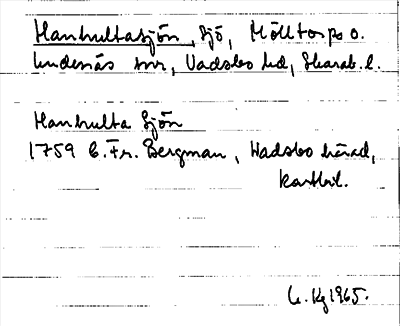 Hanhultasjön, Sjö, Mölltorps o.
Undenäs snr, Vadsbo hd, Skarab. l.
Hanhulta Sjön
1759 C. Fr. Bergman, Wadsbo härad,
kartbil.
G. Kg 1965.